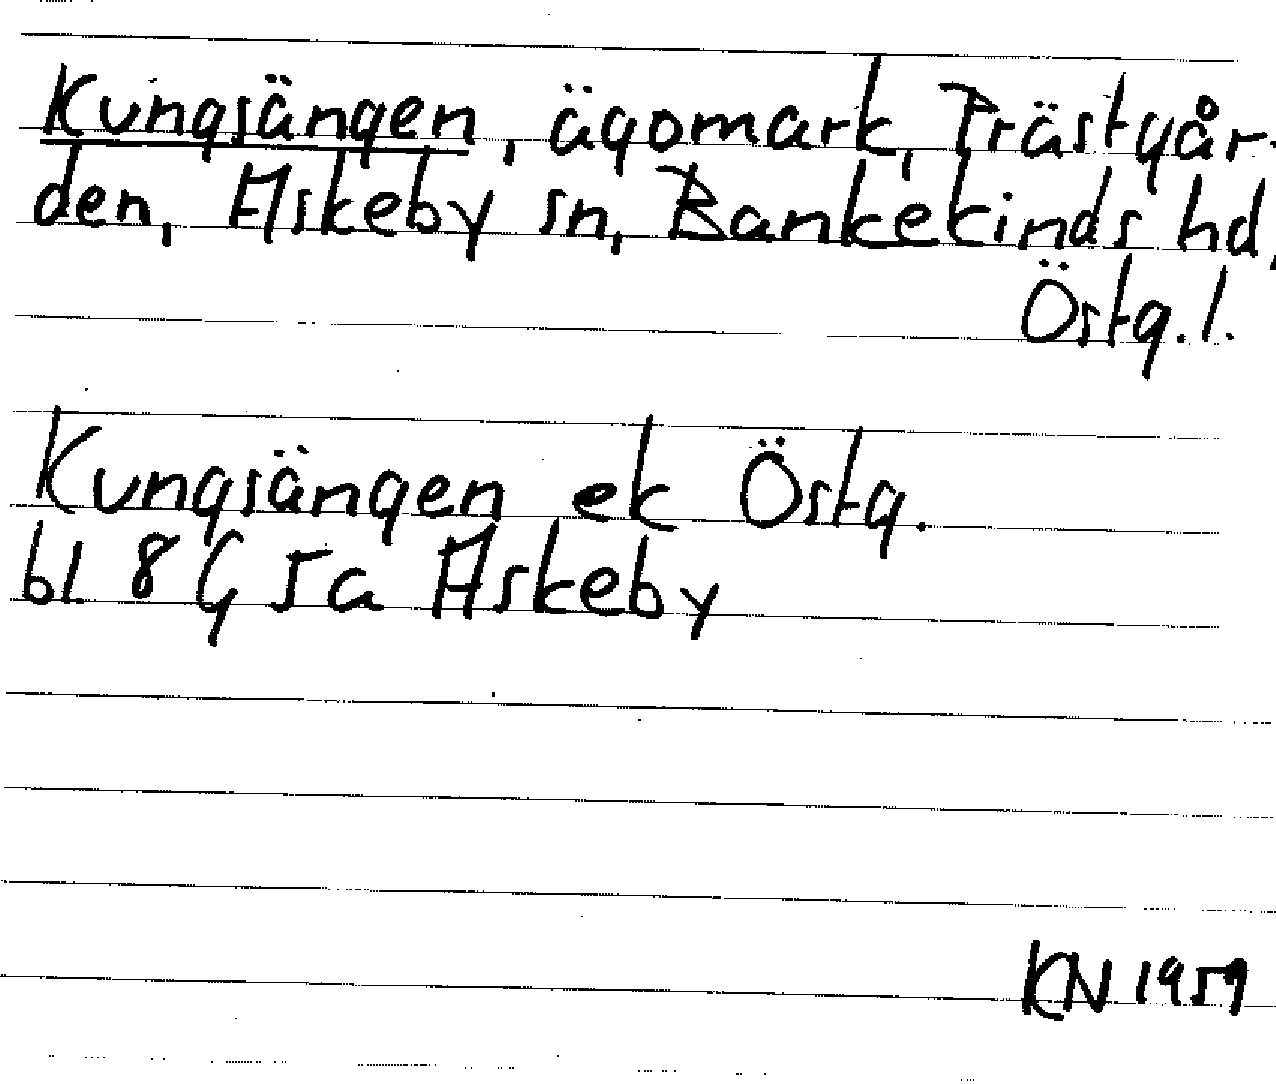 Kungsängen, ägomark, Prästgår-
den, Askeby sn, Bankekinds hd,
Östg. l.
Kungsängen ek Östg.
bl 8 G 5a Askeby
KN 1959